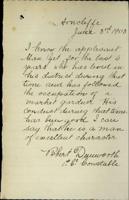 June 3rd 1913
I know the applicant
Man Yet for the last 2
years he has lived in
this district during that
time and has followed
the occupation of a
market gardner His
conduct during that time
has been good I can
say that he is a man
of excellent character
Robert
Constable